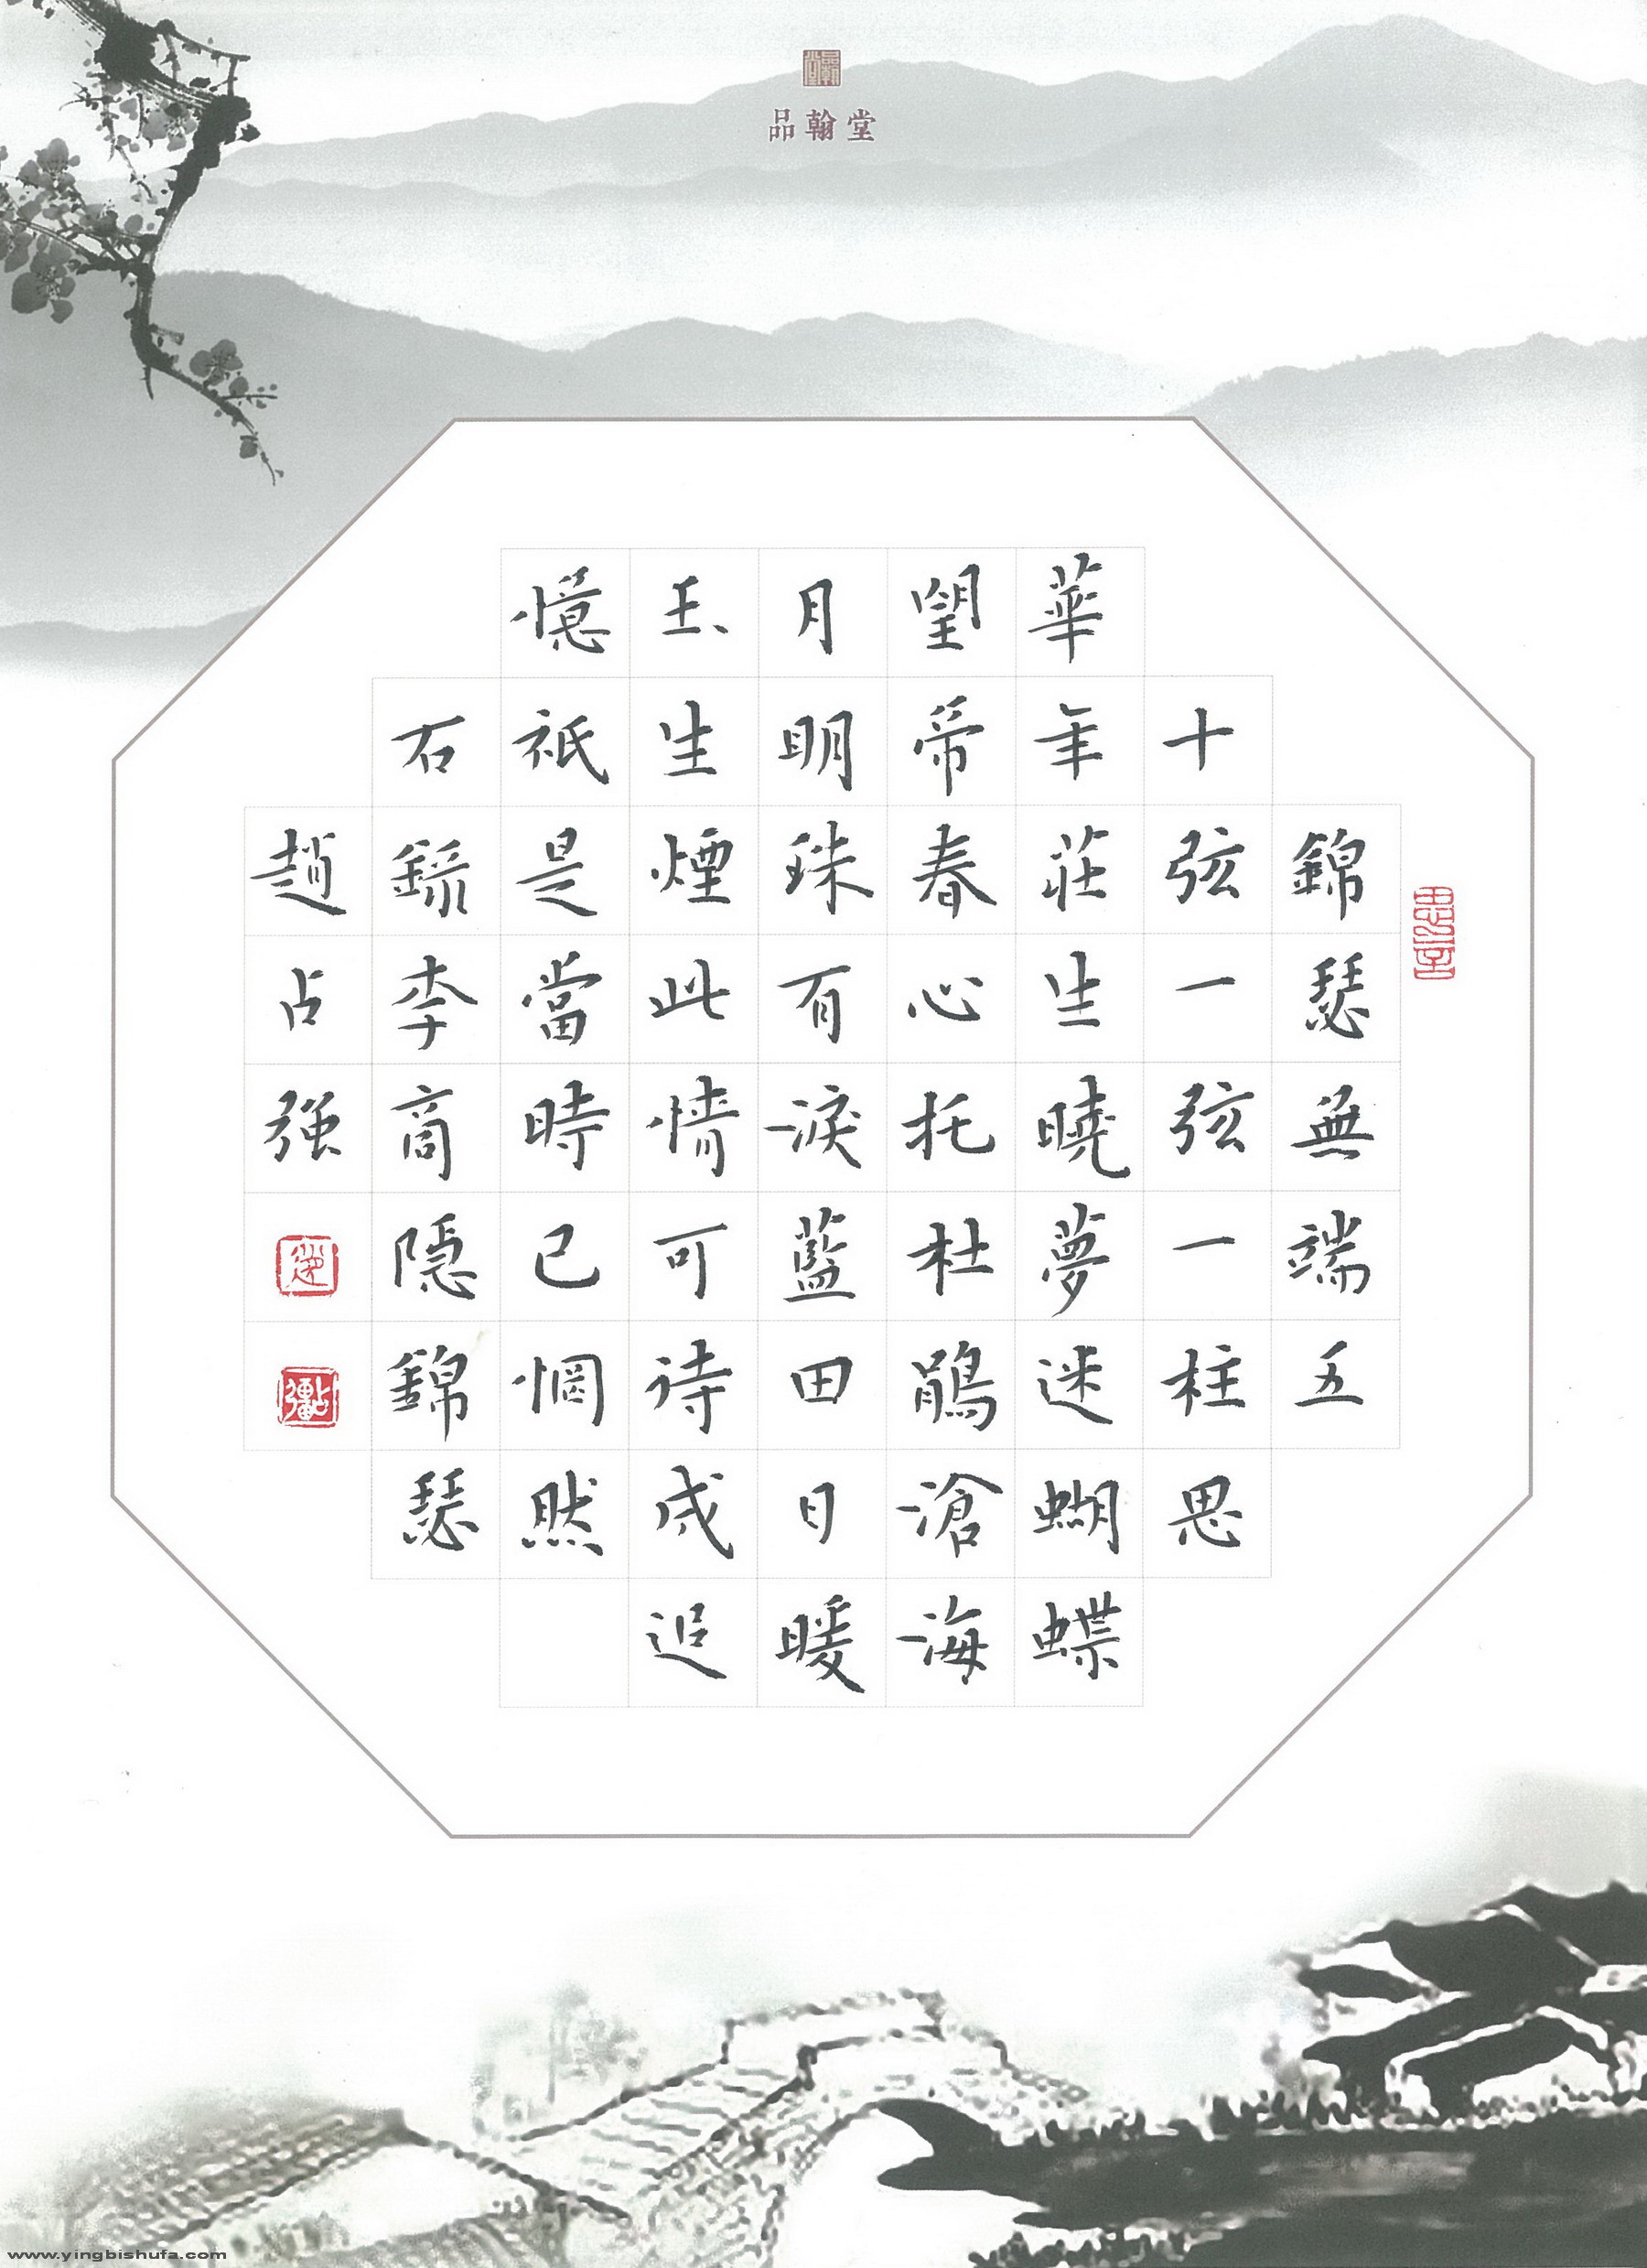 品翰堂
錦瑟無端五
十弦一弦一柱思
華年莊生曉夢迷蝴蝶
望帝春心托杜鵑滄海
月明珠有淚藍田日暖
玉生煙此情可待成追
憶祇是當時已惘然
右錄李商隱錦瑟
趙占強
www.yingbishufa.com